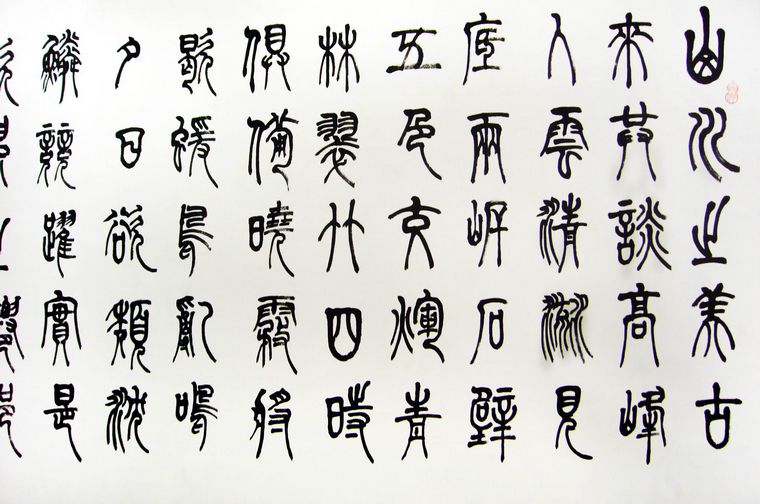 山川之美古
來共談高峰
入雲清流見
底兩岸石壁
五色交輝青
林翠竹四時
俱備曉霧將
歇蝯鳥亂鳴
夕日欲頹沈
鱗競躍實是